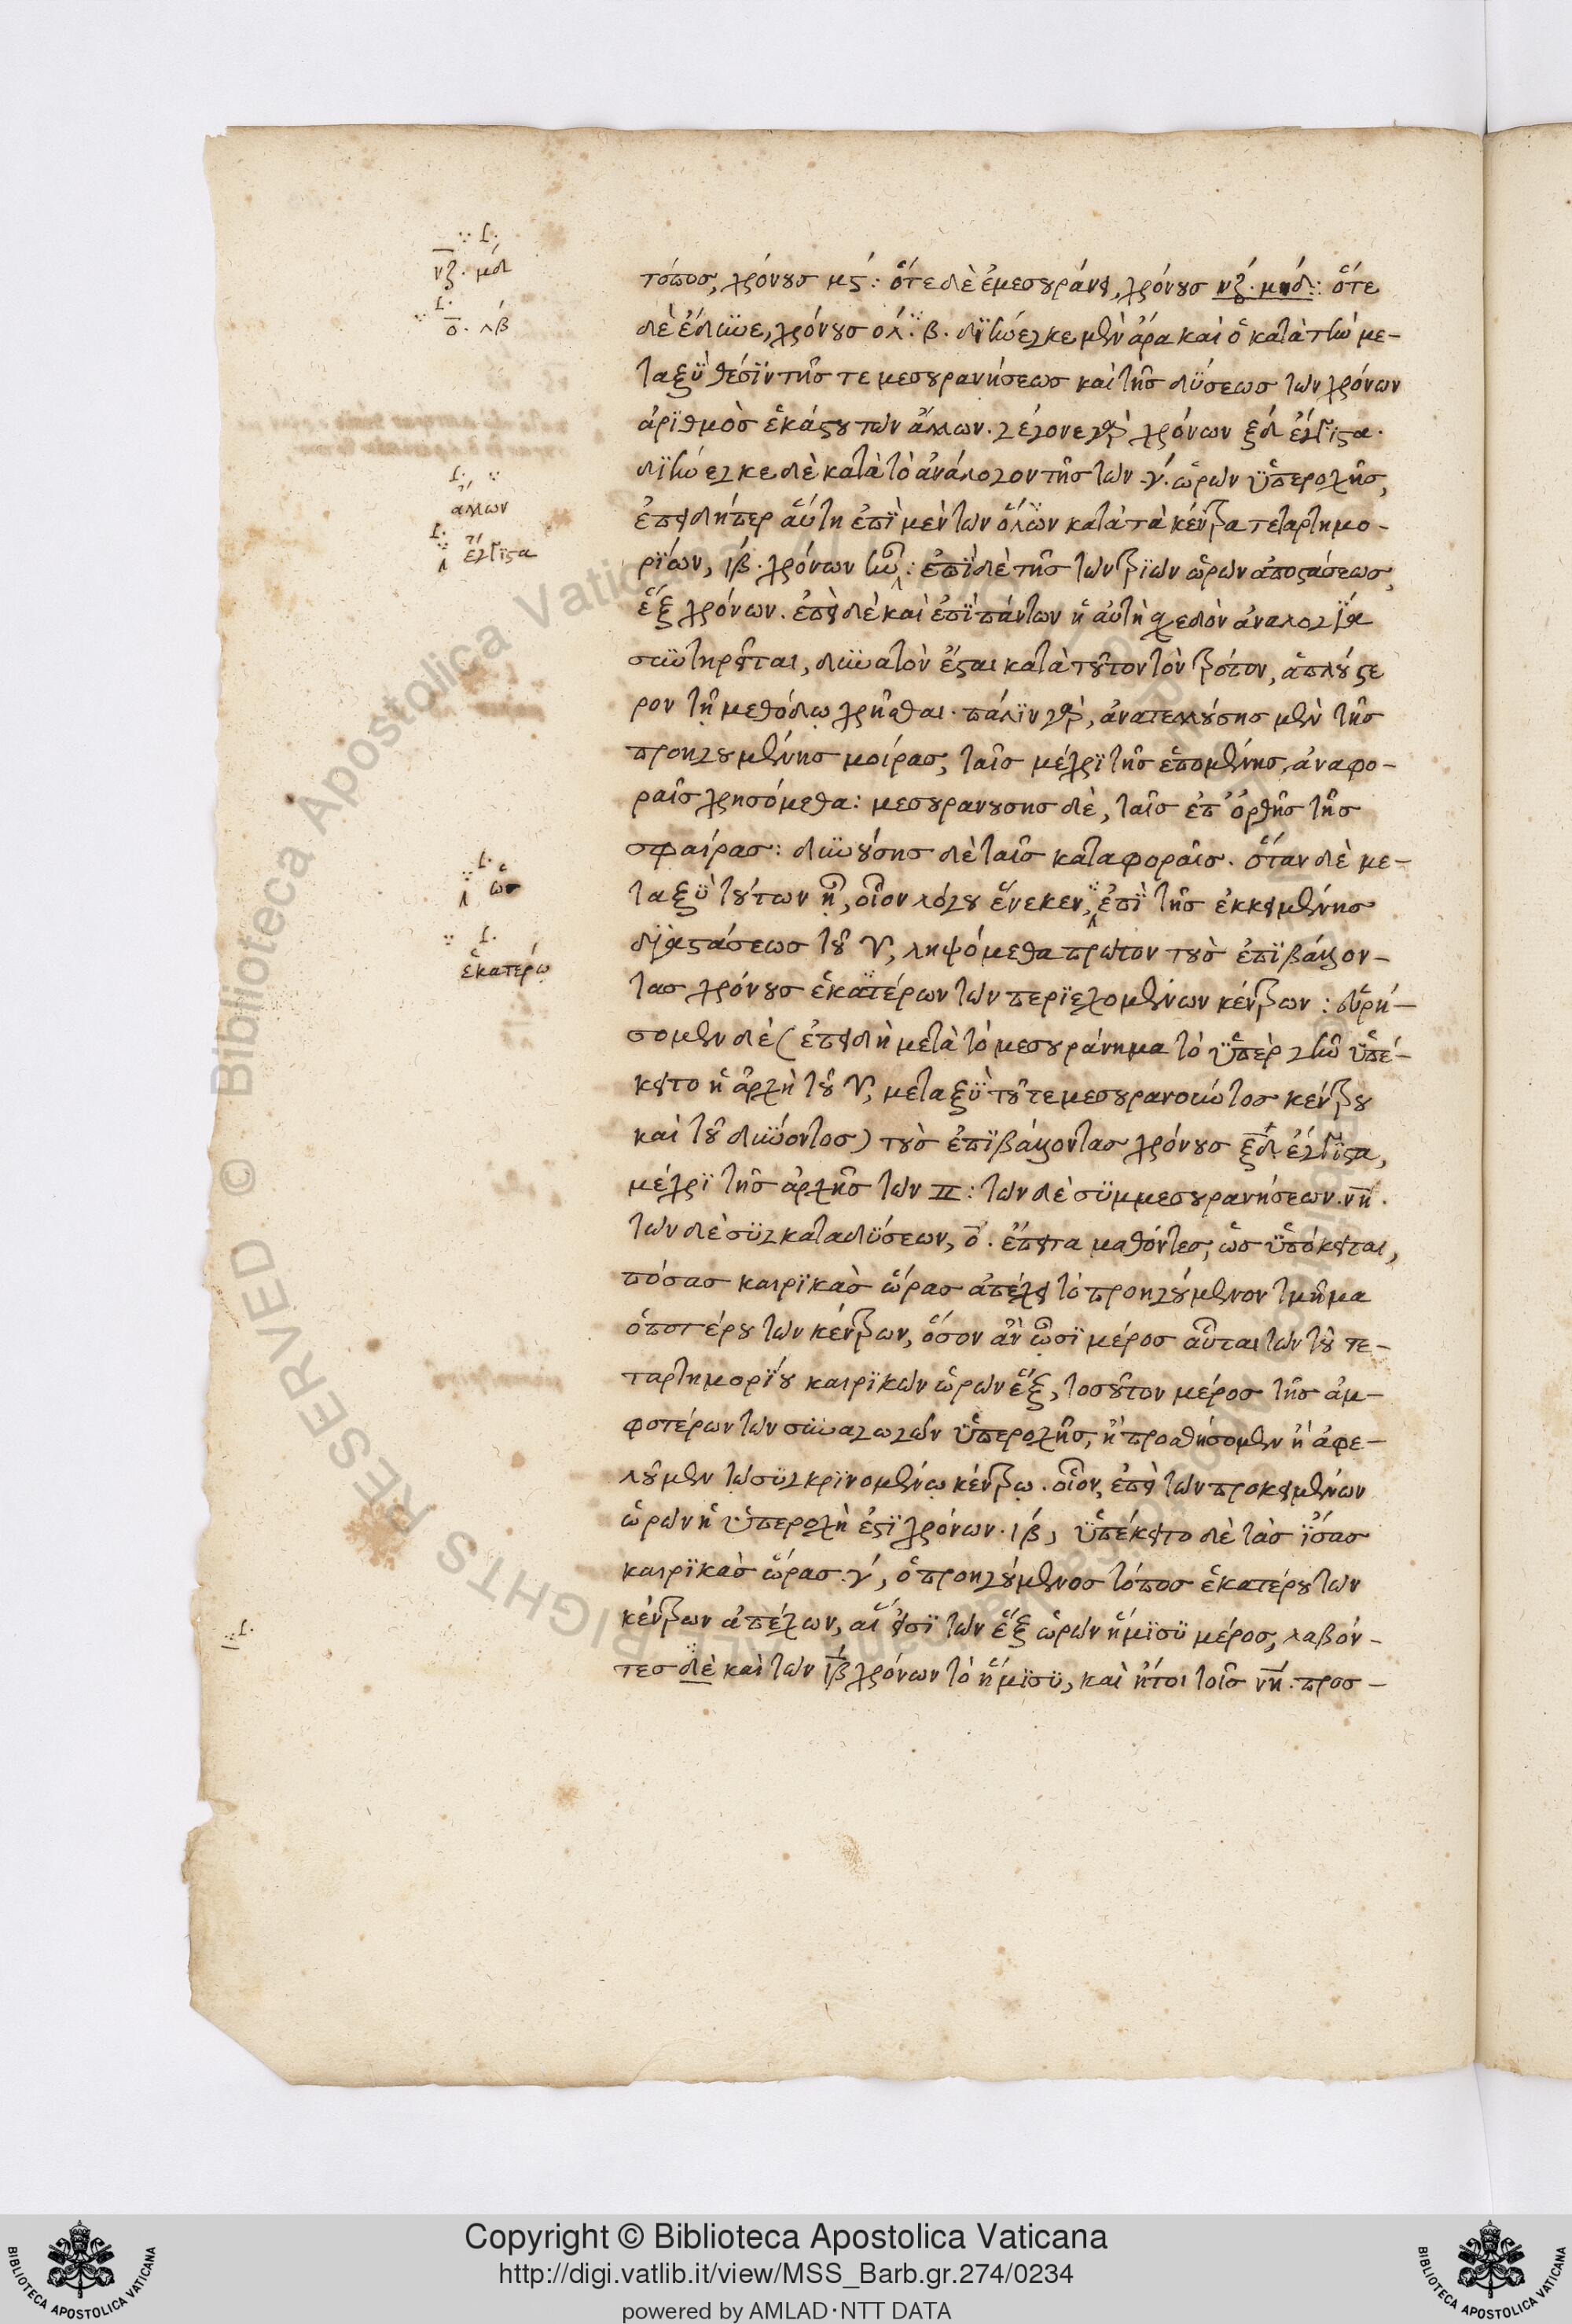 ∵ Γ·
νζ. μδ
Γ·
∵ ο. λβ
Γ· ∵
ἄλλων
Γ·
∵ ἔγγιστα
∵ Γ·
ὡς
∵ Γ·
ἑκατέρω
∵ Γ·
τόπος, χρόνους μϛ: ὅτε δὲ ἐμεσουράνει, χρόνους νζ. μδ: ὅτε
δὲ ἔδυνε, χρόνους ο λ. β. διήνεγκε μὲν ἄρα καὶ ὁ κατὰ τὴν με-
ταξὺ θέσιν τῆς τε μεσουρανήσεως καὶ τῆς δύσεως τῶν χρόνων
ἀριθμὸς ἑκάστου τῶν ἄλλων. γέγονε γὰρ χρόνων ξδ ἔγγιστα.
διήνεγκε δὲ κατὰ τὸ ἀνάλογον τῆς τῶν .γ. ὡρῶν ὑπεροχῆς,
ἐπειδήπερ αὕτη ἐπὶ μὲν τῶν ὅλων κατὰ τὰ κέντρα τεταρτημο-
ρίων, ιβ. χρόνων ἦν: ἐπὶ δὲ τῆς τῶν τριῶν ὡρῶν ἀποστάσεως,
ἓξ χρόνων. ἐπεὶ δὲ καὶ ἐπὶ πάντων ἡ αὐτὴ σχεδὸν ἀναλογία
συντηρεῖται, δυνατὸν ἔσται κατὰ τοῦτον τὸν τρόπον, ἁπλούστε
ρον τῇ μεθόδῳ χρῆσθαι. πάλιν γὰρ, ἀνατελλούσης μὲν τῆς
προηγουμένης μοίρας, ταῖς μέχρι τῆς ἑπομένης, ἀναφο-
ραῖς χρησόμεθα: μεσουρανουσης δὲ, ταῖς ἐπ' ὀρθῆς τῆς
σφαίρας: δυνούσης δὲ ταῖς καταφοραῖς. ὅταν δὲ με-
ταξὺ τούτων ᾖ, οἷον λόγου ἕνεκεν, ἐπὶ τῆς ἐκκειμένης
διαστάσεως τοῦ ♈, ληψόμεθα πρῶτον τοὺς ἐπιβάλλον-
τας χρόνους ἑκατέρων τῶν περιεχομένων κέντρων: εὑρή-
σομεν δὲ (ἐπειδὴ μετὰ τὸ μεσουράνημα τὸ ὑπὲρ γῆν ὑπέ-
κειτο ἡ ἀρχὴ τοῦ ♈, μεταξὺ τοῦ τε μεσουρανοῦντος κέντρου
καὶ τοῦ δύνοντος) τοὺς ἐπιβάλλοντας χρόνους ξδ ἔγγιστα,
μέχρι τῆς ἀρχῆς τῶν ♊: τῶν δὲ συμμεσουρανήσεων. νη.
τῶν δὲ συγκαταδύσεων, ο. ἔπειτα μαθόντες, ὡς ὑπόκειται,
πόσας καιρικὰς ὥρας ἀπέχει τὸ προηγούμενον τμῆμα
ὁποτέρου τῶν κέντρων, ὅσον ἂν ὦσι μέρος αὗται τῶν τοῦ τε-
ταρτημορίου καιρικῶν ὡρῶν ἓξ, τοσοῦτον μέρος τῆς ἀμ-
φοτέρων τῶν συναγωγῶν ὑπεροχῆς, ἢ προσθήσομεν ἢ ἀφε-
λοῦμεν τῷ συγκρινομένῳ κέντρῳ. οἷον, ἐπεὶ τῶν προκειμένων
ὡρῶν ἡ ὑπεροχὴ ἐστὶ χρόνων. ιβ, ὑπέκειτο δὲ τὰς ἴσας
καιρικὰς ὥρας .γ, ὁ προηγούμενος τόπος ἑκατέρου τῶν
κέντρων ἀπέχων, αἵ εἰσι τῶν ἓξ ὡρῶν ἥμισυ μέρος, λαβόν-
τες δὲ καὶ τῶν ιβ χρόνων τὸ ἥμισυ, καὶ ἤτοι τοῖς νη. προσ-
© Biblioteca Apostolica Vaticana
ALL RIGHTS RESERVED
Copyright © Biblioteca Apostolica Vaticana
http://digi.vatlib.it/view/MSS_Barb.gr.274/0234
powered by AMLAD·NTT DATA
BIBLIOTECA APOSTOLICA VATICANA
BIBLIOTECA APOSTOLICA VATICANA